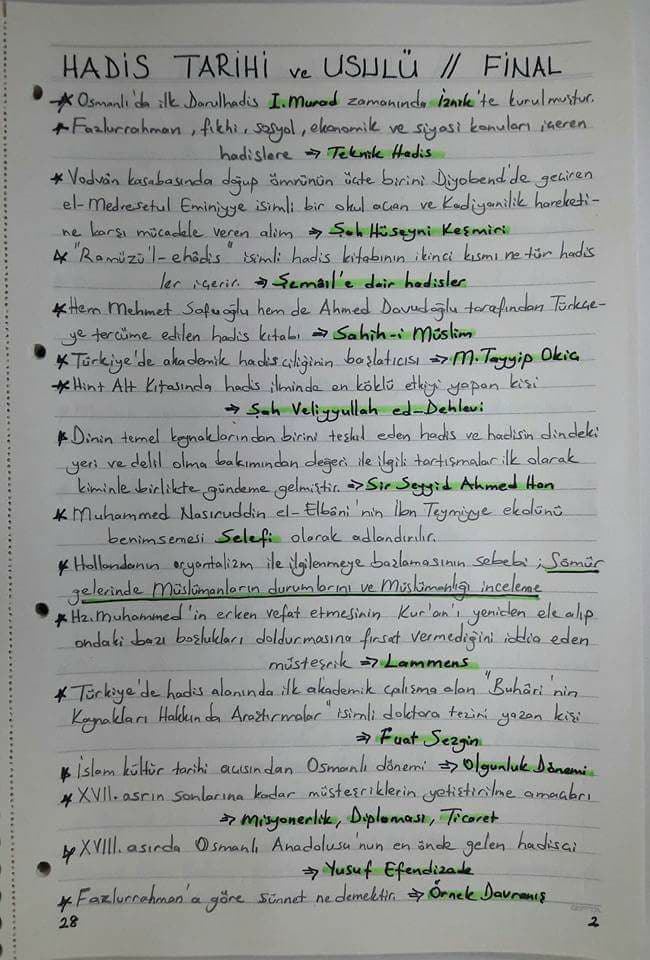 HADİS TARİHİ ve USULÜ // FİNAL
* Osmanlı'da ilk Darulhadis I. Murad zamanında İznik'te kurulmuştur.
* Fazlurrahman, fıkhi, sosyal, ekonomik ve siyasi konuları içeren
hadislere => Teknik Hadis
* Vodvân kasabasında doğup ömrünün üçte birini Diyobend'de geçiren
el-Medresetul Eminiyye isimli bir okul açan ve Kadiyanilik hareketi-
ne karşı mücadele veren alim => Şah Hüseyni Keşmiri
* "Ramûzü'l-ehâdis" isimli hadis kitabının ikinci kısmı ne tür hadis
ler içerir. => Şemail'e dair hadisler
* Hem Mehmet Sofuoğlu hem de Ahmed Davudoğlu tarafından Türkçe-
ye tercüme edilen hadis kitabı => Sahih-i Müslim
* Türkiye'de akademik hadisçiliğinin başlatıcısı => M. Tayyip Okiç
* Hint Alt Kıtasında hadis ilminde en köklü etkiyi yapan kişi
=> Şah Veliyyullah ed-Dehlevi
* Dinin temel kaynaklarından birini teşkil eden hadis ve hadisin dindeki
yeri ve delil olma bakımından değeri ile ilgili tartışmalar ilk olarak
kiminle birlikte gündeme gelmiştir. => Sir Seyyid Ahmed Han
* Muhammed Nasıruddin el-Elbâni'nin İbn Teymiyye ekolünü
benimsemesi Selefi olarak adlandırılır.
* Hollandanın oryantalizm ile ilgilenmeye bazlamasının sebebi ; Sömür
gelerinde Müslümanların durumlarını ve Müslümanlığı inceleme
* Hz. Muhammed'in erken vefat etmesinin Kur'an'ı yeniden ele alıp
ondaki bazı boşlukları doldurmasına fırsat vermediğini iddia eden
müsteşrik => Lammens
* Türkiye'de hadis alanında ilk akademik çalışma alan "Buhâri'nin
Kaynakları Hakkında Araştırmalar" isimli doktora tezini yazan kişi
=> Fuat Sezgin
* İslam kültür tarihi açısından Osmanlı dönemi => Olgunluk Dönemi
* XVII. asrın sonlarına kadar müsteşriklerin yetiştirilme amaçları
=> Misyonerlik, Diploması, Ticaret
* XVIII. asırda Osmanlı Anadolusu'nun en önde gelen hadisçi
=> Yusuf Efendizade
* Fazlurrahman'a göre sünnet ne demektir. => Örnek Davranış
28 2